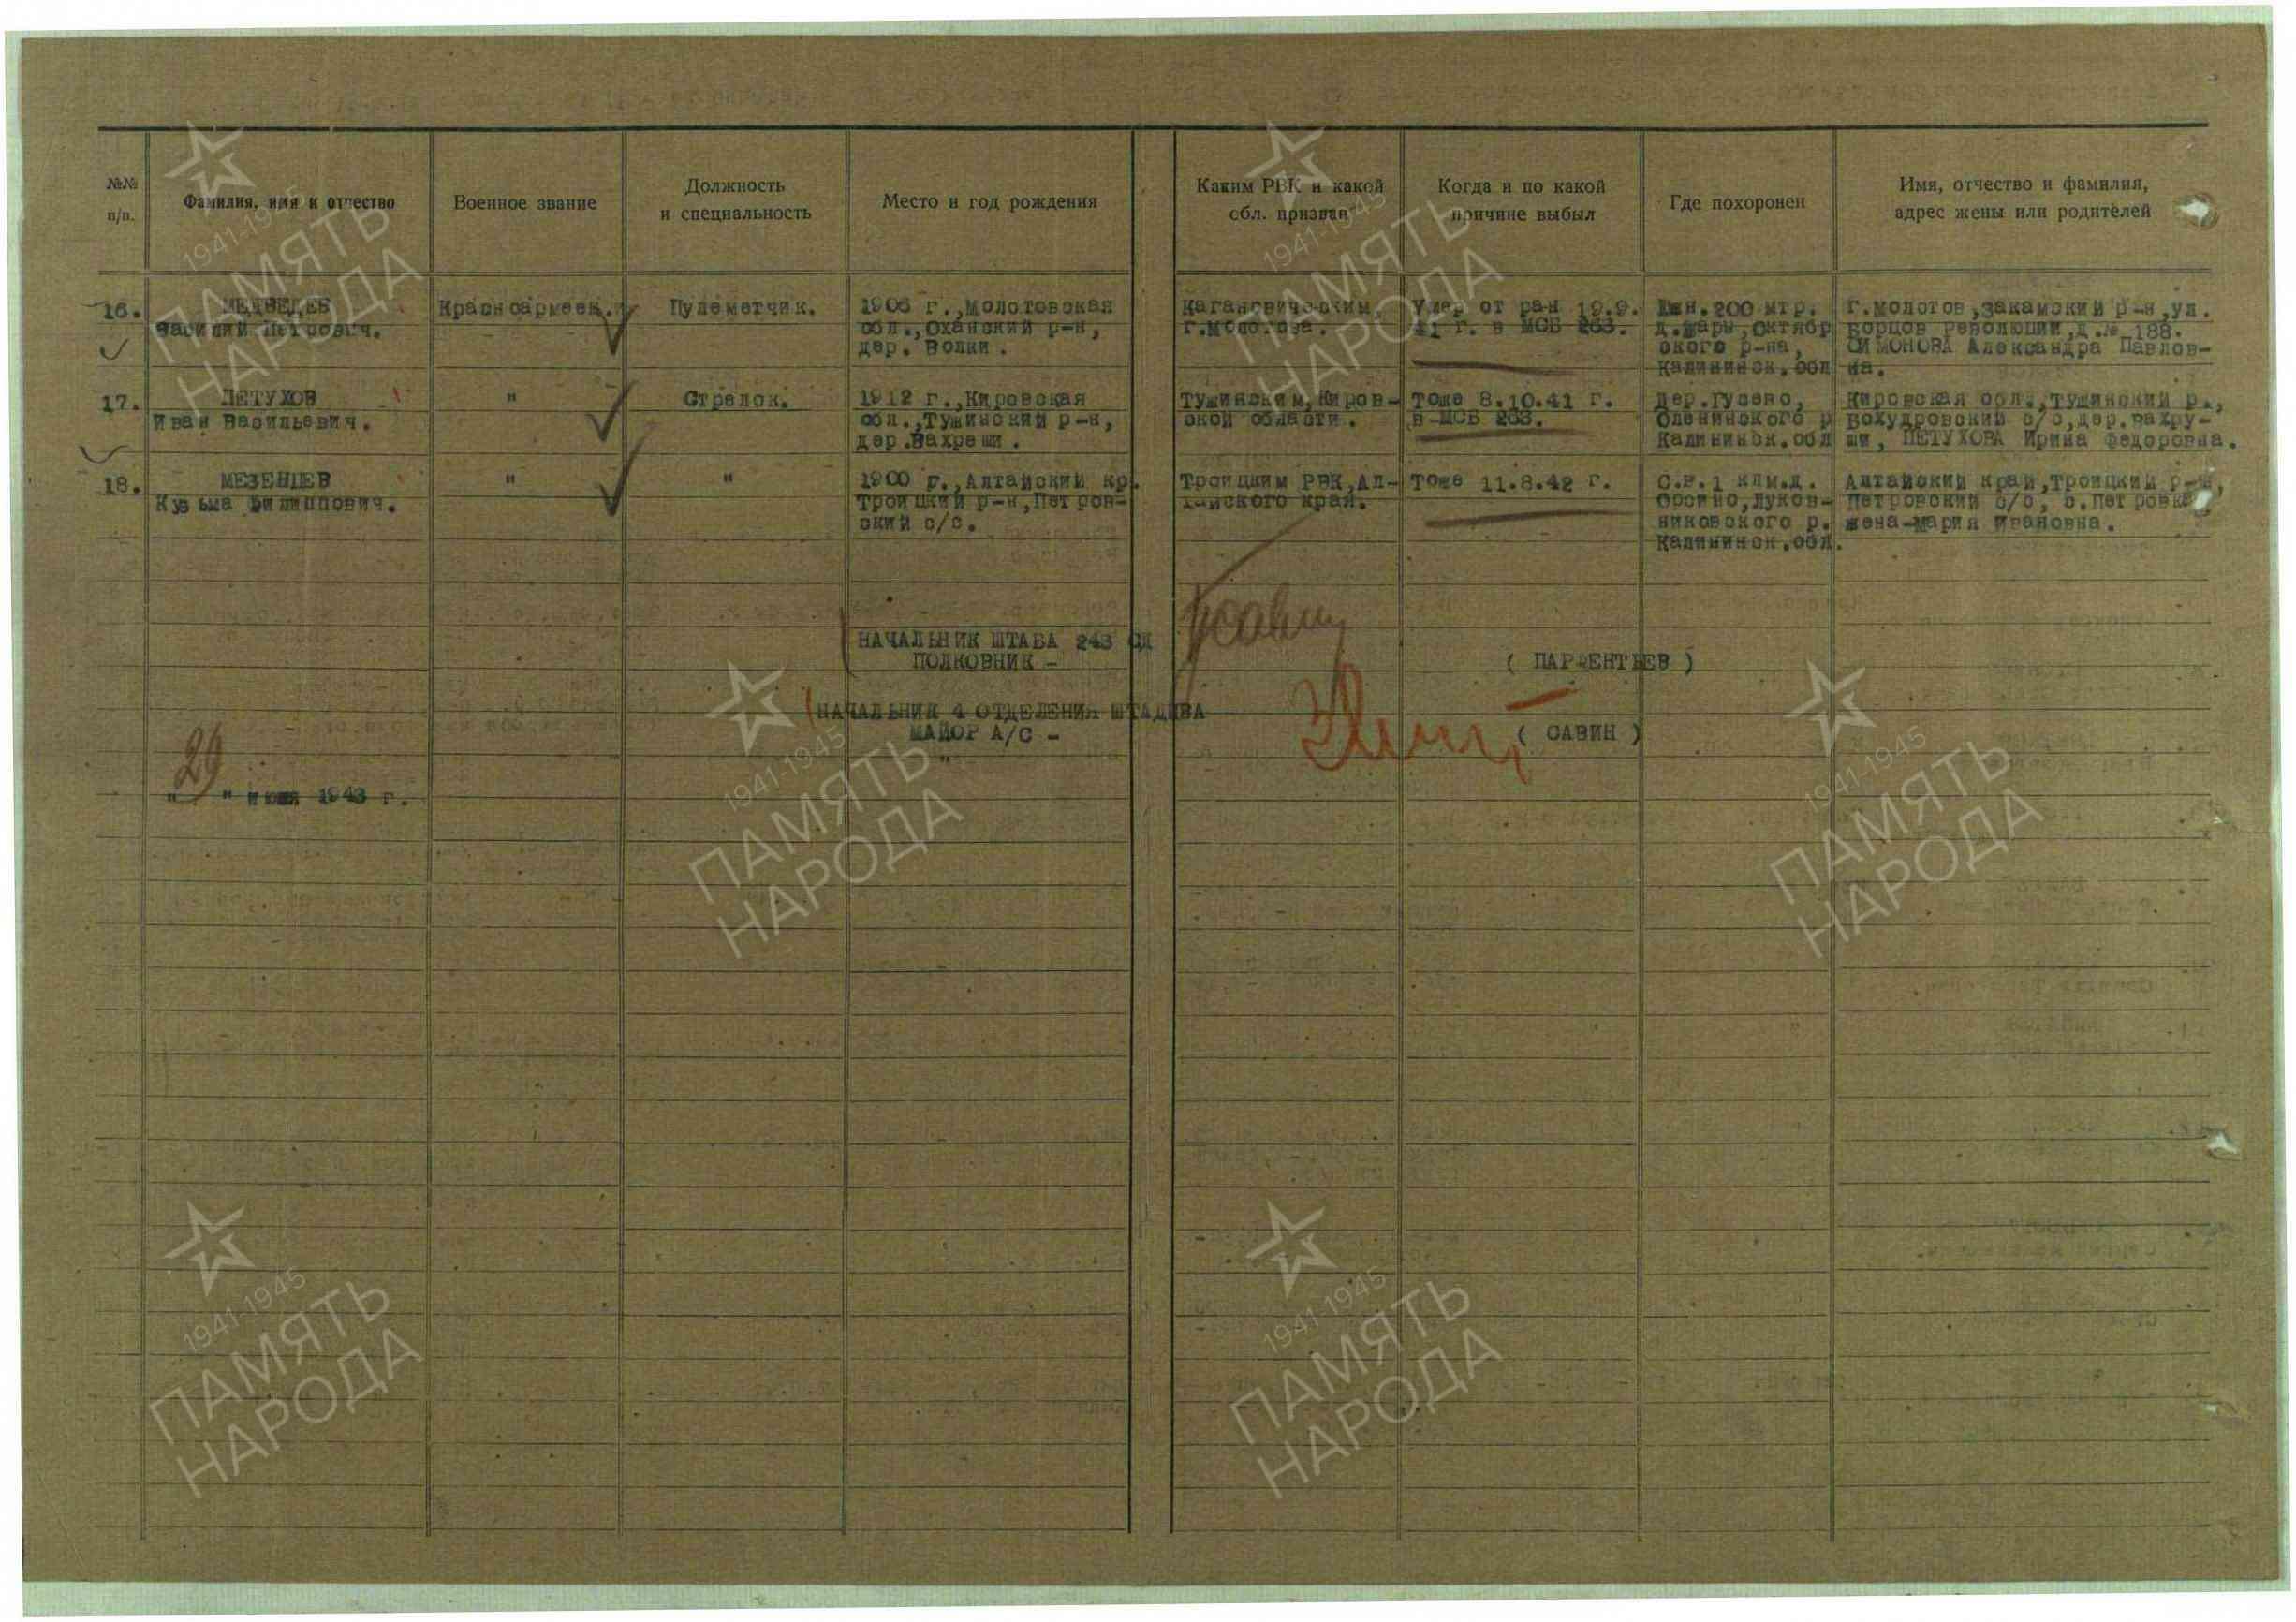 №№
п/п.
Фамилия, имя и отчество
Военное звание
Должность
и специальность
Место и год рождения
Каким РВК и какой
обл. призван
Когда и по какой
причине выбыл
Где похоронен
Имя, отчество и фамилия,
адрес жены или родителей
16.
МЕДВЕДЕВ
Василий Петрович.
Красноармеец.
Пулеметчик.
1906 г., Молотовская
обл., Оханский р-н,
дер. Волки.
Кагановичским,
г.Молотова.
Умер от ран 19.9.
41 г. в МСБ 263.
Южн. 200 мтр.
д. Жары, Октябр
ского р-на,
Калининск. обл
г. Молотов, Закамский р-н, ул.
Борцов революции, д.№ 188.
СИМОНОВА Александра Павлов-
на.
17.
ПЕТУХОВ
Иван Васильевич.
"
Стрелок.
1912 г., Кировская
обл., Тужинский р-н,
дер. Вахреши.
Тужинским, Киров-
ской области.
Тоже 8.10.41 г.
в МСБ 263.
дер. Гусево,
Оленинского р
Калининск. обл
Кировская обл., Тужинский р.,
с/с, дер. Вахру-
ши, ПЕТУХОВА Ирина Федоровна.
18.
МЕЗЕНЦЕВ
Кузьма Филиппович.
"
"
1900 г., Алтайский кр.
Троицкий р-н, Петров-
ский с/с.
Троицким РВК, Ал-
тайского края.
Тоже 11.8.42 г.
С.в. 1 клм. д.
Луков-
никовского р.
Калининск. обл.
Алтайский край, Троицкий р-н,
Петровский с/с, с. Петровка
жена-Мария Ивановна.
НАЧАЛЬНИК ШТАБА 243 СД
ПОЛКОВНИК -
( ПАРФЕНТЬЕВ )
НАЧАЛЬНИК 4 ОТДЕЛЕНИЯ ШТАДИВА
МАЙОР А/С -
( САВИН )
" 29 " июня 1943 г.
1941-1945
ПАМЯТЬ
НАРОДА
1941-1945
ПАМЯТЬ
НАРОДА
1941-1945
ПАМЯТЬ
НАРОДА
1941-1945
ПАМЯТЬ
НАРОДА
1941-1945
ПАМЯТЬ
НАРОДА
1941-1945
ПАМЯТЬ
НАРОДА